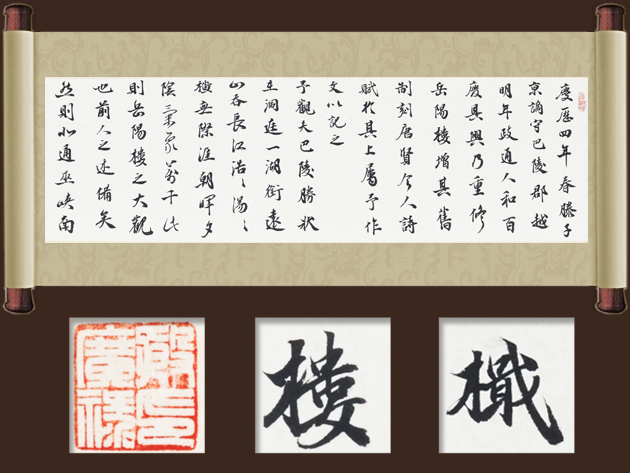 慶歷四年春滕子
京謫守巴陵郡越
明年政通人和百
廢具興乃重修
岳陽樓增其舊
制刻唐賢今人詩
賦於其上屬予作
文以記之
予觀夫巴陵勝狀
在洞庭一湖銜遠
山吞長江浩〻湯〻
橫無際涯朝暉夕
陰氣象萬千此
則岳陽樓之大觀
也前人之述備矣
然則北通巫峽南
樓